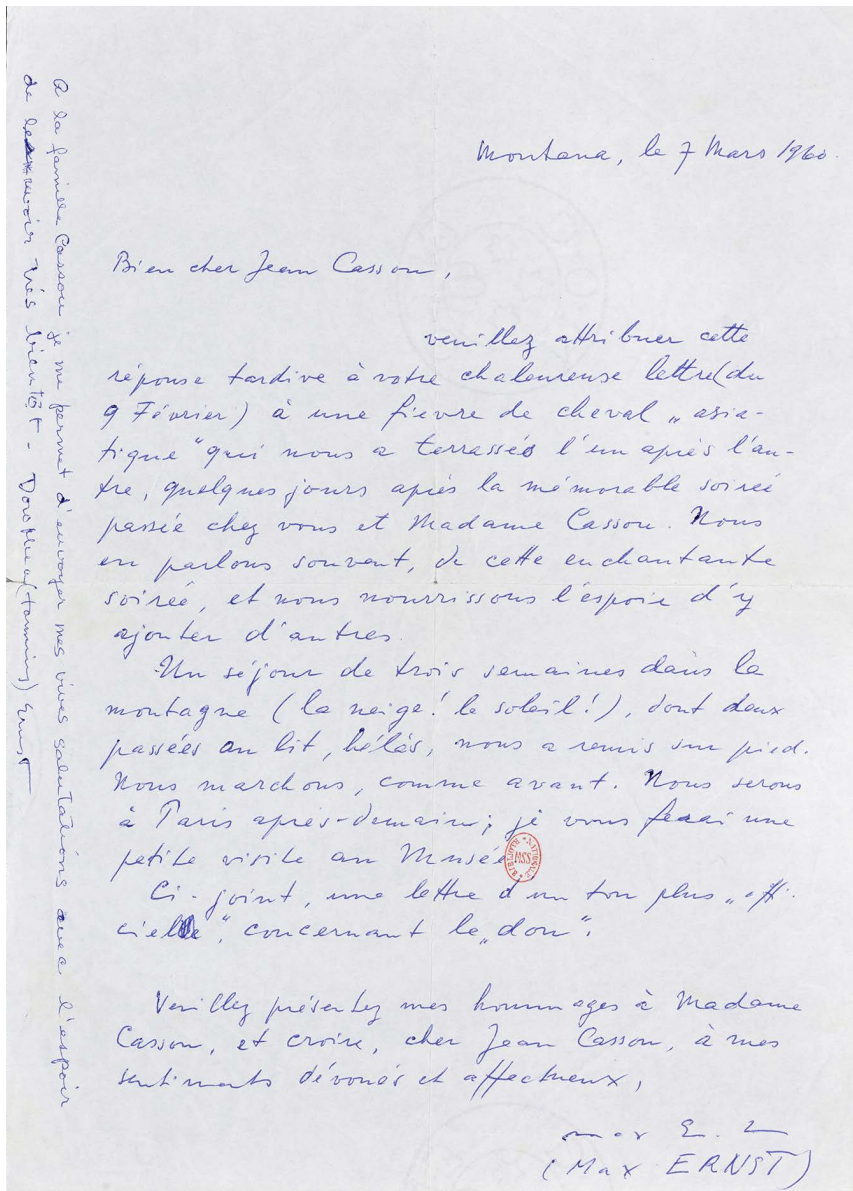 Montana, le 7 Mars 1960.
Bien cher Jean Cassou,
veuillez attribuer cette
réponse tardive à votre chaleureuse lettre (du
9 Février) à une fievre de cheval „asia-
tique“ qui nous a terrassés l'un après l'au-
tre, quelques jours après la mémorable soirée
passée chez vous et Madame Cassou. Nous
en parlons souvent, de cette enchantante
soirée, et nous nourrissons l'espoir d'y
ajouter d'autres.
Un séjour de trois semaines dans la
montagne (la neige! le soleil!), dont deux
passées au lit, hélás, nous a remis sur pied.
Nous marchons, comme avant. Nous serons
à Paris après-demain; je vous ferai une
petite visite au Musée
Ci-joint, une lettre d'un ton plus „offi-
ciel“, concernant le „don“.
Veuillez présentez mes hommages à Madame
Cassou, et croire, cher Jean Cassou, à mes
sentiments dévoués et affectueux,
max E
(Max ERNST)
A la famille Cassou je me permet d'envoyer mes vives salutations avec l'espoir
de revoir très bientôt - Dorothea (Tanning) Ernst
BIBLIOTH. NATIONALE
MSS